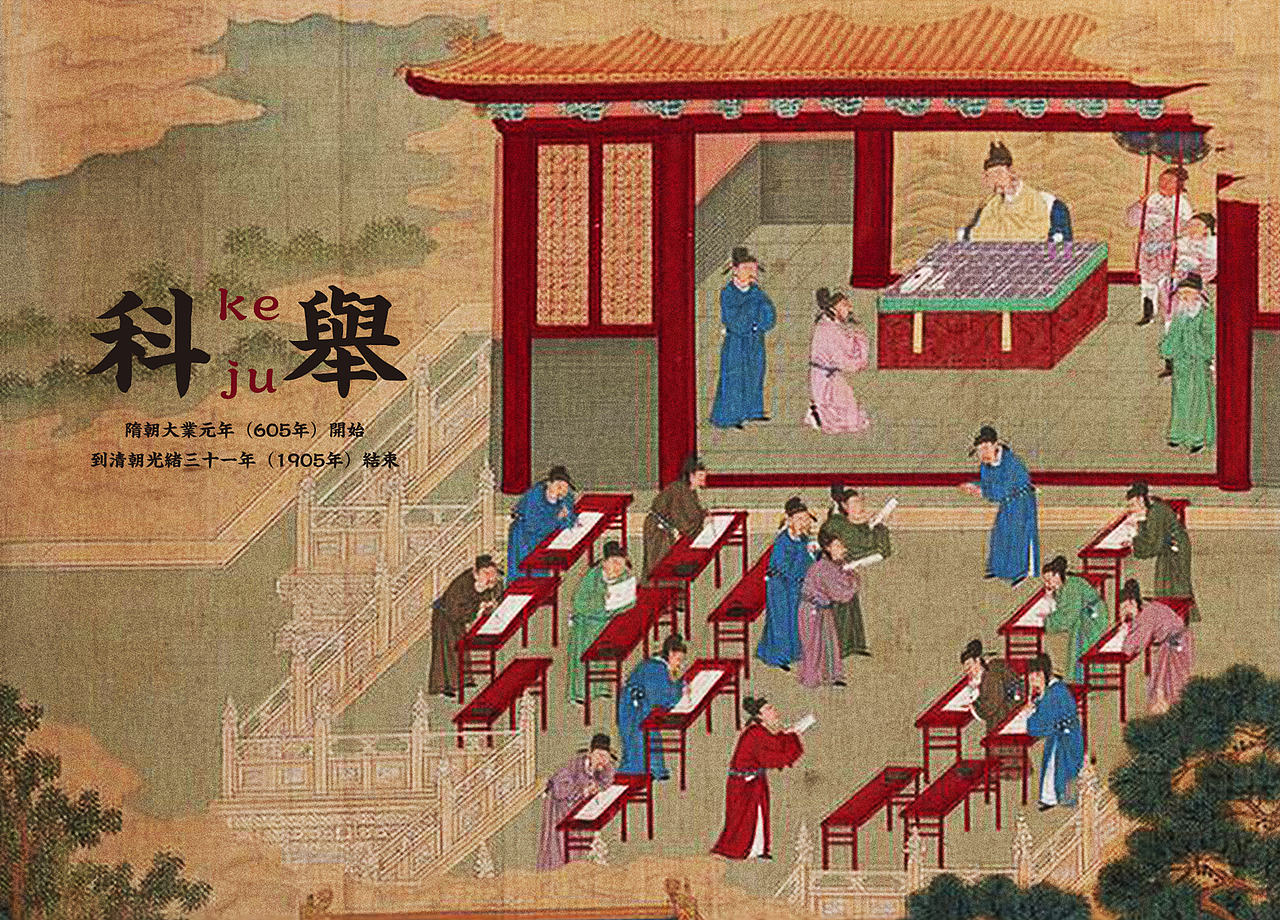 科 ke ju 舉
隋朝大業元年（605年）開始
到清朝光緒三十一年（1905年）結束